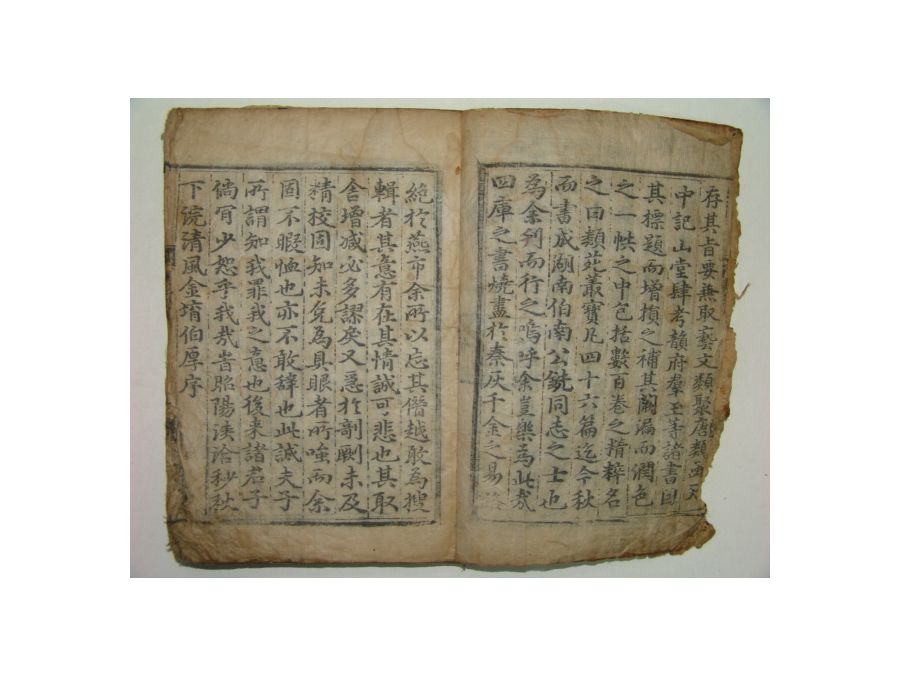 存其旨要兼取藝文類聚唐類函天
中記山堂肆考韻府羣玉等諸書因
其標題而增損之補其闕漏而潤色
之一帙之中包括數百卷之精粹名
之曰類苑叢寶凡四十六篇迄今秋
而書成湖南伯南公銑同志之士也
為余刋而行之嗚呼余豈樂為此哉
四庫之書燒盡於秦灰千金之易
絕於燕市余所以忘其僭越敢為搜
輯者其意有在其情誠可悲也其取
舍增減必多謬矣又急於剞劂未及
精校固知未免為具眼者所嗤而余
固不暇恤也亦不敢辞也此誠夫子
所謂知我罪我之意也後来諸君子
倘肯少恕乎我哉旹昭陽浹洽秒秋
下浣清風金堉伯厚序